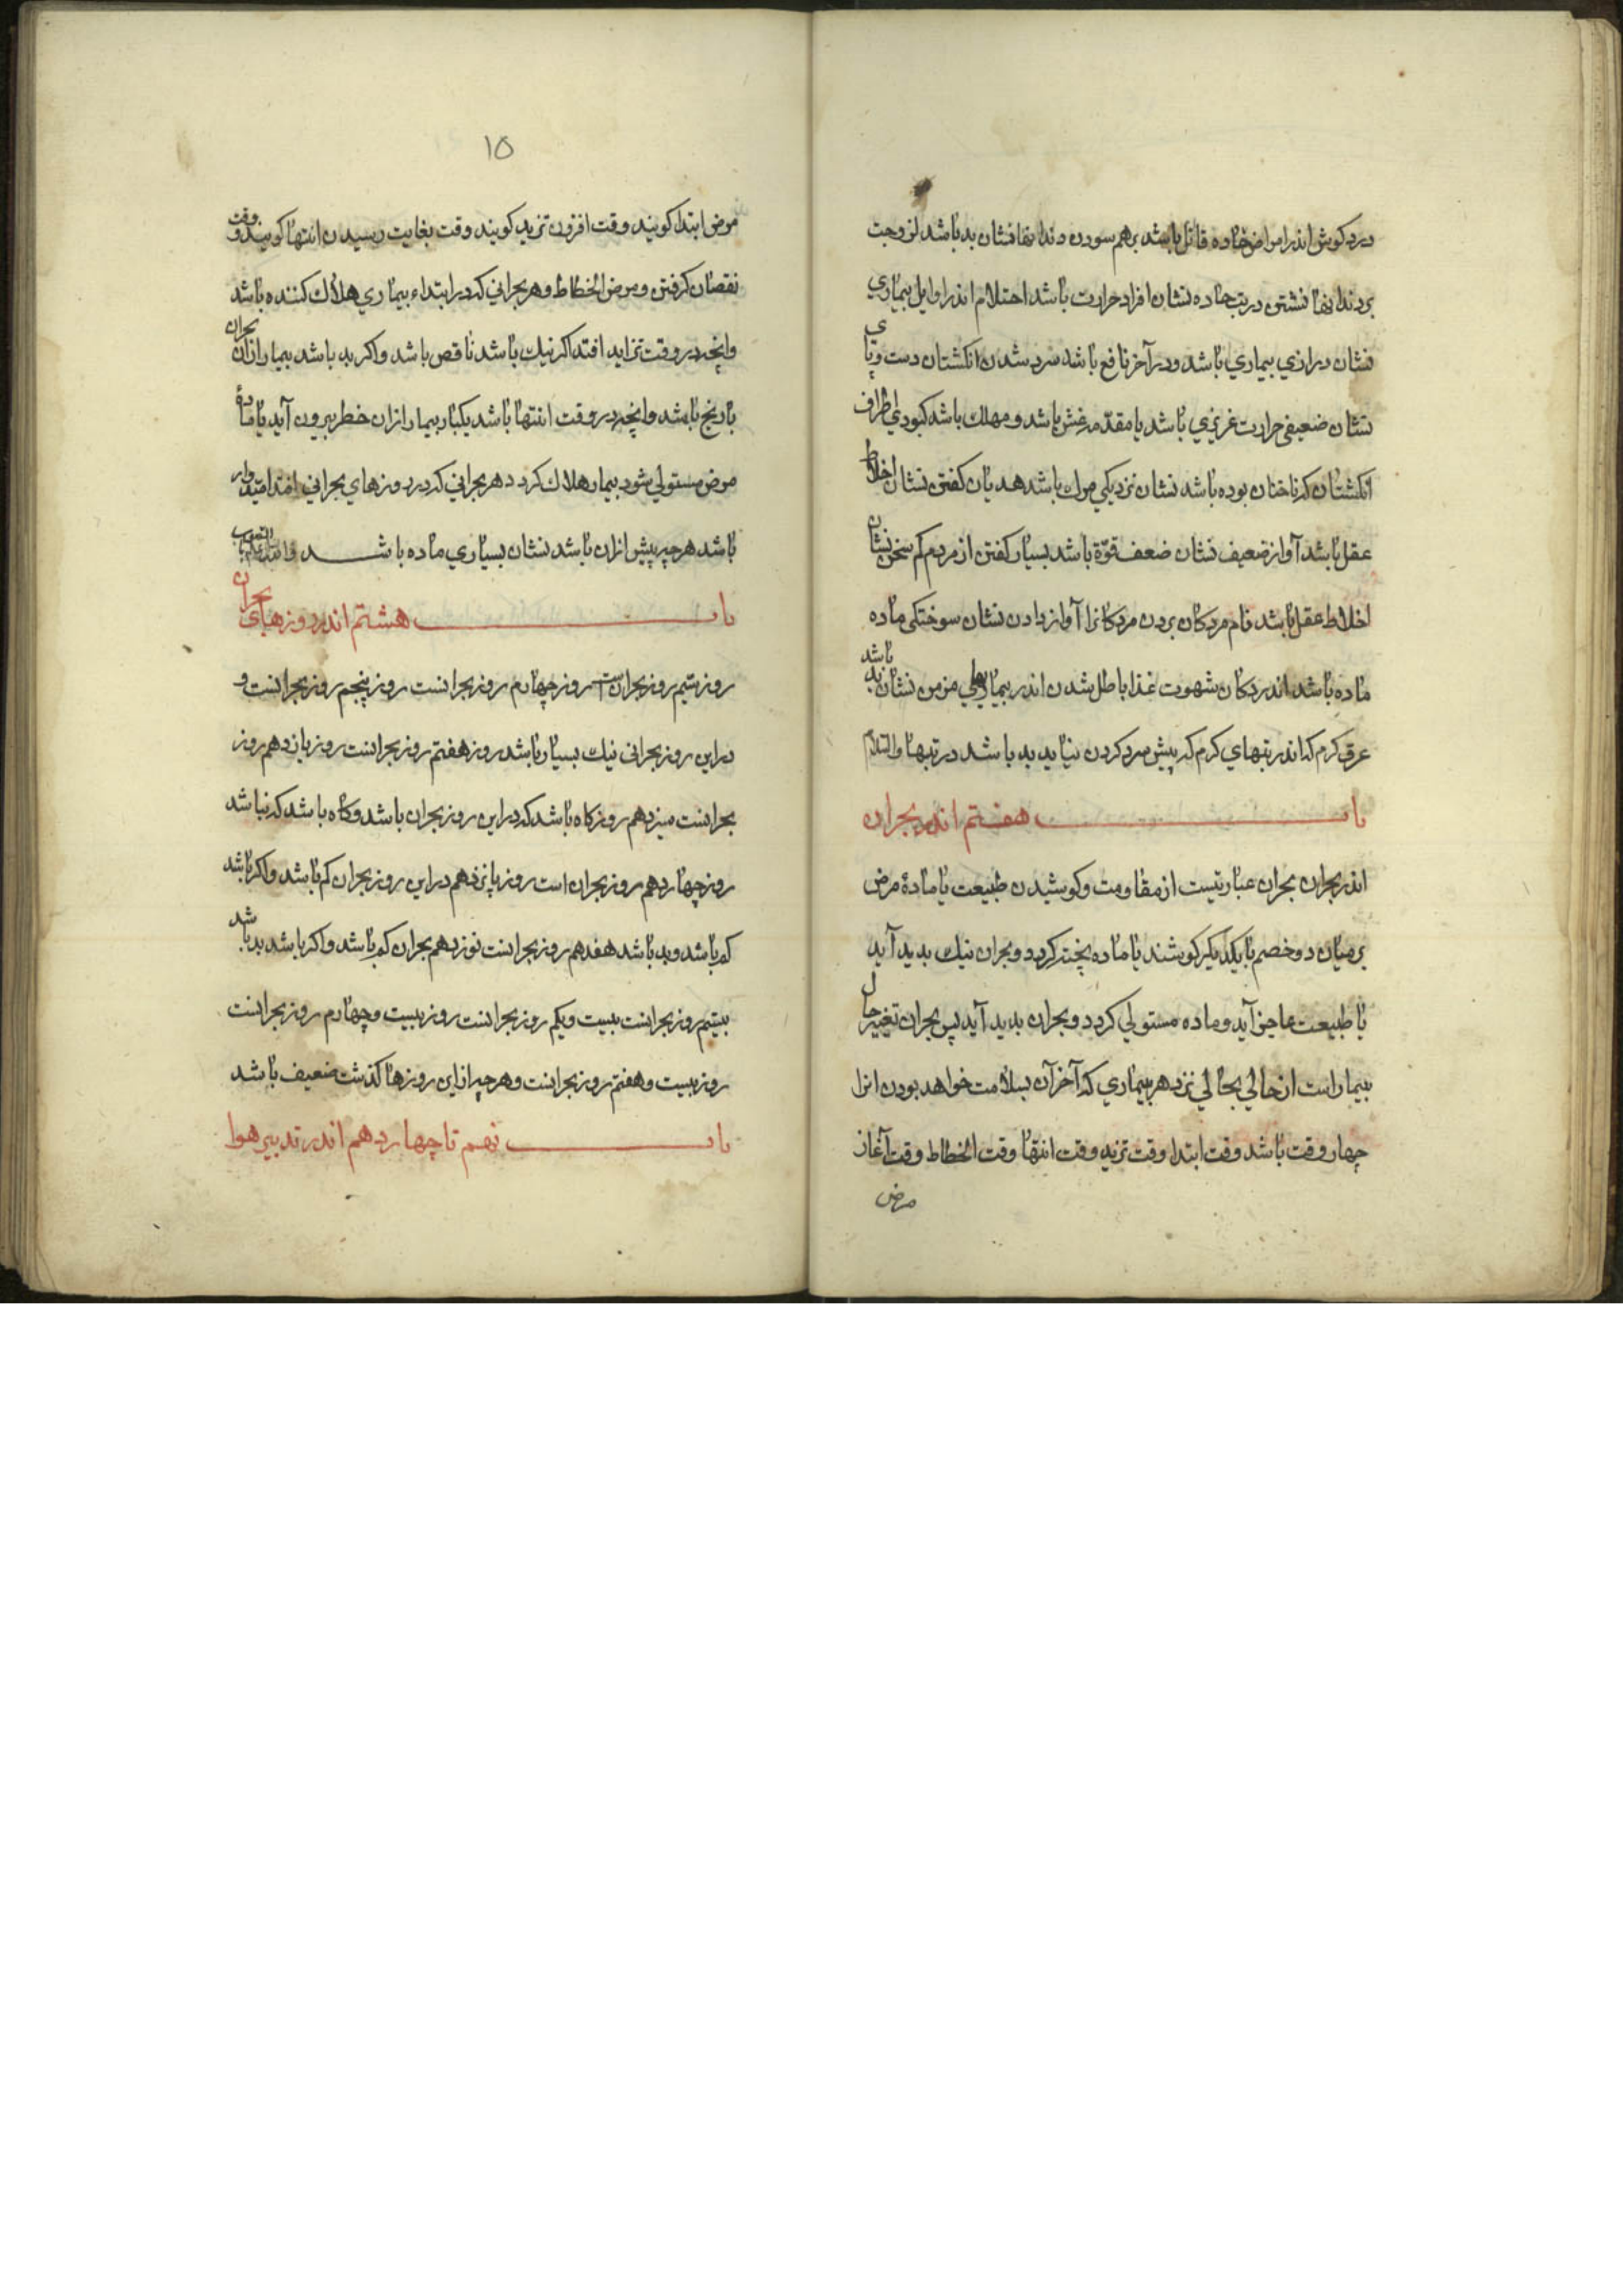 درد کوش اندر امراض حاده قاتل باشد برهم سودن دندانها نشان بد باشد لزوجت
بر دندانها نشستن در تب حاده نشان افراد حرارت باشد احتلام اندر اوایل بیماري
نشان درازي بیماري باشد ودر آخر نافع باشد سرد شدن انکشتان دست وپای
نشان ضعیفی حرارت غریزي باشد یا مقدمه غش باشد ومهلك باشد کبودي اطراف
انکشتان که ناخنان بوده باشد نشان نزدیکي مرك باشد هدیان کفتن نشان اخلاط
عقل باشد آواز ضعیف نشان ضعف قوّة باشد بسیار کفتن از مردم کم سخن نشان
اخلاط عقل باشد نام مردکان بردن مردکانرا آواز دادن نشان سوختکی ماده
ماده باشد اندر دکان شهوت غذا باطل شدن اندر بیماریهاي مزمن نشان بد باشد
عرق کرم که اندر تبهاي کرم که پیش سرد کردن نیاید بد باشد در تبها والسلام
باب هفتم اندر بحران
اندر بحران بحران عبارتیست از مقاومت وکوشیدن طبیعت با مادهٔ مرض
برمیان دو خصم با یکدیکر کوشند یا ماده پخته کردد وبحران نیك بدید آید
یا طبیعت عاجز آید وماده مستولي کردد وبحران بدید آید پس بحران تغییر حال
بیمار است از حالي بحالي نزد هر بیماري که آخر آن بسلامت خواهد بودن انرا
چهار وقت باشد وقت ابتدا وقت تزید وقت انتها وقت انحطاط وقت آغاز
مرض
۱۵
مرض ابتدا کویند وقت افزون تزید کویند وقت بغایت رسیدن انتها کویند ووقت
نقصان کرفتن ومرض انحطاط وهر بحراني که در ابتداء بیماري هلاك کننده باشد
وانچه در وقت تزاید افتد اکر نیك باشد ناقص باشد واکر بد باشد بیمار ازان بحران
با رنج باشد وانچه در وقت انتها باشد یکبار بیمار ازان خطر بیرون آید یا مادهٔ
مرض مستولي شود بیمار هلاك کردد هر بحراني که در روزهاي بحراني افتد امیدوار
باشد هرچه پیش ازان باشد نشان بسیاري ماده باشد
باب هشتم اندر روزهای بحران
روز سیم روز بحران است روز چهارم روز بحرانست روز پنجم روز بحرانست و
در این روز بحرانی نیك بسیار باشد روز هفتم روز بحرانست روز یازدهم روز
بحرانست سیزدهم روز کاه باشد که در این روز بحران باشد وکاه باشد که نباشد
روز چهاردهم روز بحران است روز پانزدهم در این روز بحران کم باشد واکر باشد
کم باشد وبد باشد هفدهم روز بحرانست نوزدهم بحران کم باشد واکر باشد بد باشد
بیستم روز بحرانست بیست ویکم روز بحرانست روز بیست وچهارم روز بحرانست
روز بیست وهفتم روز بحرانست وهرچه از این روزها کذشت ضعیف باشد
باب نهم تا چهاردهم اندر تدبیر هوا